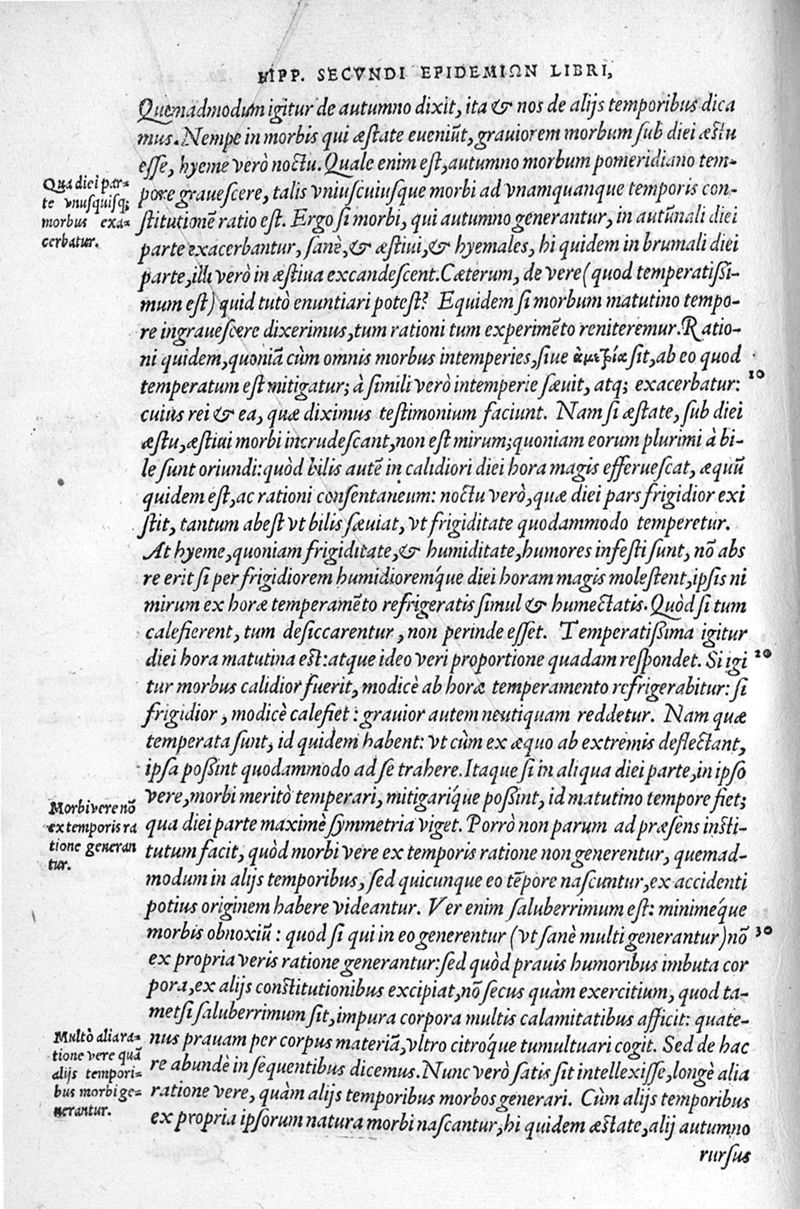 HIPP. SECVNDI EPIDEMIΩN LIBRI,
Quemadmodum igitur de autumno dixit, ita & nos de alijs temporibus dica
mus. Nempe in morbis qui æstate eueniũt, grauiorem morbum sub diei æstu
esse, hyeme verò noctu. Quale enim est, autumno morbum pomeridiano tem-
pore grauescere, talis vniuscuiusque morbi ad vnamquanque temporis con-
stitutionẽ ratio est. Ergo si morbi, qui autumno generantur, in autũnali diei
parte exacerbantur, sanè, & æstiui, & hyemales, hi quidem in brumali diei
parte, illi verò in æstiua excandescent. Cæterum, de vere (quod temperatissi-
mum est) quid tutò enuntiari potest? Equidem si morbum matutino tempo-
re ingrauescere dixerimus, tum rationi tum experimẽto reniteremur. Ratio-
ni quidem, quoniã cùm omnis morbus intemperies, siue ἀμετρία sit, ab eo quod
temperatum est mitigatur; à simili verò intemperie sæuit, atq; exacerbatur:
cuius rei & ea, quæ diximus testimonium faciunt. Nam si æstate, sub diei
æstu, æstiui morbi incrudescant, non est mirum; quoniam eorum plurimi à bi-
le sunt oriundi: quòd bilis autẽ in calidiori diei hora magis efferuescat, æquũ
quidem est, ac rationi consentaneum: noctu verò, quæ diei pars frigidior exi
stit, tantum abest vt bilis sæuiat, vt frigiditate quodammodo temperetur.
At hyeme, quoniam frigiditate, & humiditate, humores infesti sunt, nõ abs
re erit si per frigidiorem humidioremq́ue diei horam magis molestent, ipsis ni
mirum ex horæ temperamẽto refrigeratis simul & humectatis. Quòd si tum
calefierent, tum desiccarentur, non perinde esset. Temperatissima igitur
diei hora matutina est: atque ideo veri proportione quadam respondet. Si igi
tur morbus calidior fuerit, modicè ab horæ temperamento refrigerabitur: si
frigidior, modicè calefiet: grauior autem neutiquam reddetur. Nam quæ
temperata sunt, id quidem habent: vt cùm ex æquo ab extremis deflectant,
ipsa possint quodammodo ad se trahere. Itaque si in aliqua diei parte, in ipso
vere, morbi meritò temperari, mitigariq́ue possint, id matutino tempore fiet;
qua diei parte maximè symmetria viget. Porrò non parum ad præsens insti-
tutum facit, quòd morbi vere ex temporis ratione non generentur, quemad-
modum in alijs temporibus, sed quicunque eo tẽpore nascuntur, ex accidenti
potius originem habere videantur. Ver enim saluberrimum est: minimeq́ue
morbis obnoxiũ: quod si qui in eo generentur (vt sanè multi generantur) nõ
ex propria veris ratione generantur: sed quòd prauis humoribus imbuta cor
pora, ex alijs constitutionibus excipiat, nõ secus quàm exercitium, quod ta-
metsi saluberrimum sit, impura corpora multis calamitatibus afficit: quate-
nus prauam per corpus materiã, vltro citroq́ue tumultuari cogit. Sed de hac
re abundè in sequentibus dicemus. Nunc verò satis sit intellexisse, longè alia
ratione vere, quàm alijs temporibus morbos generari. Cùm alijs temporibus
ex propria ipsorum natura morbi nascantur, hi quidem æstate, alij autumno
rursus
Qua diei par-
te vnusquisq;
morbus exa-
cerbatur.
10
20
Morbi vere nõ
ex temporis ra
tione generan
tur.
30
Multò alia ra-
tione vere quã
alijs tempori-
bus morbi ge-
nerantur.